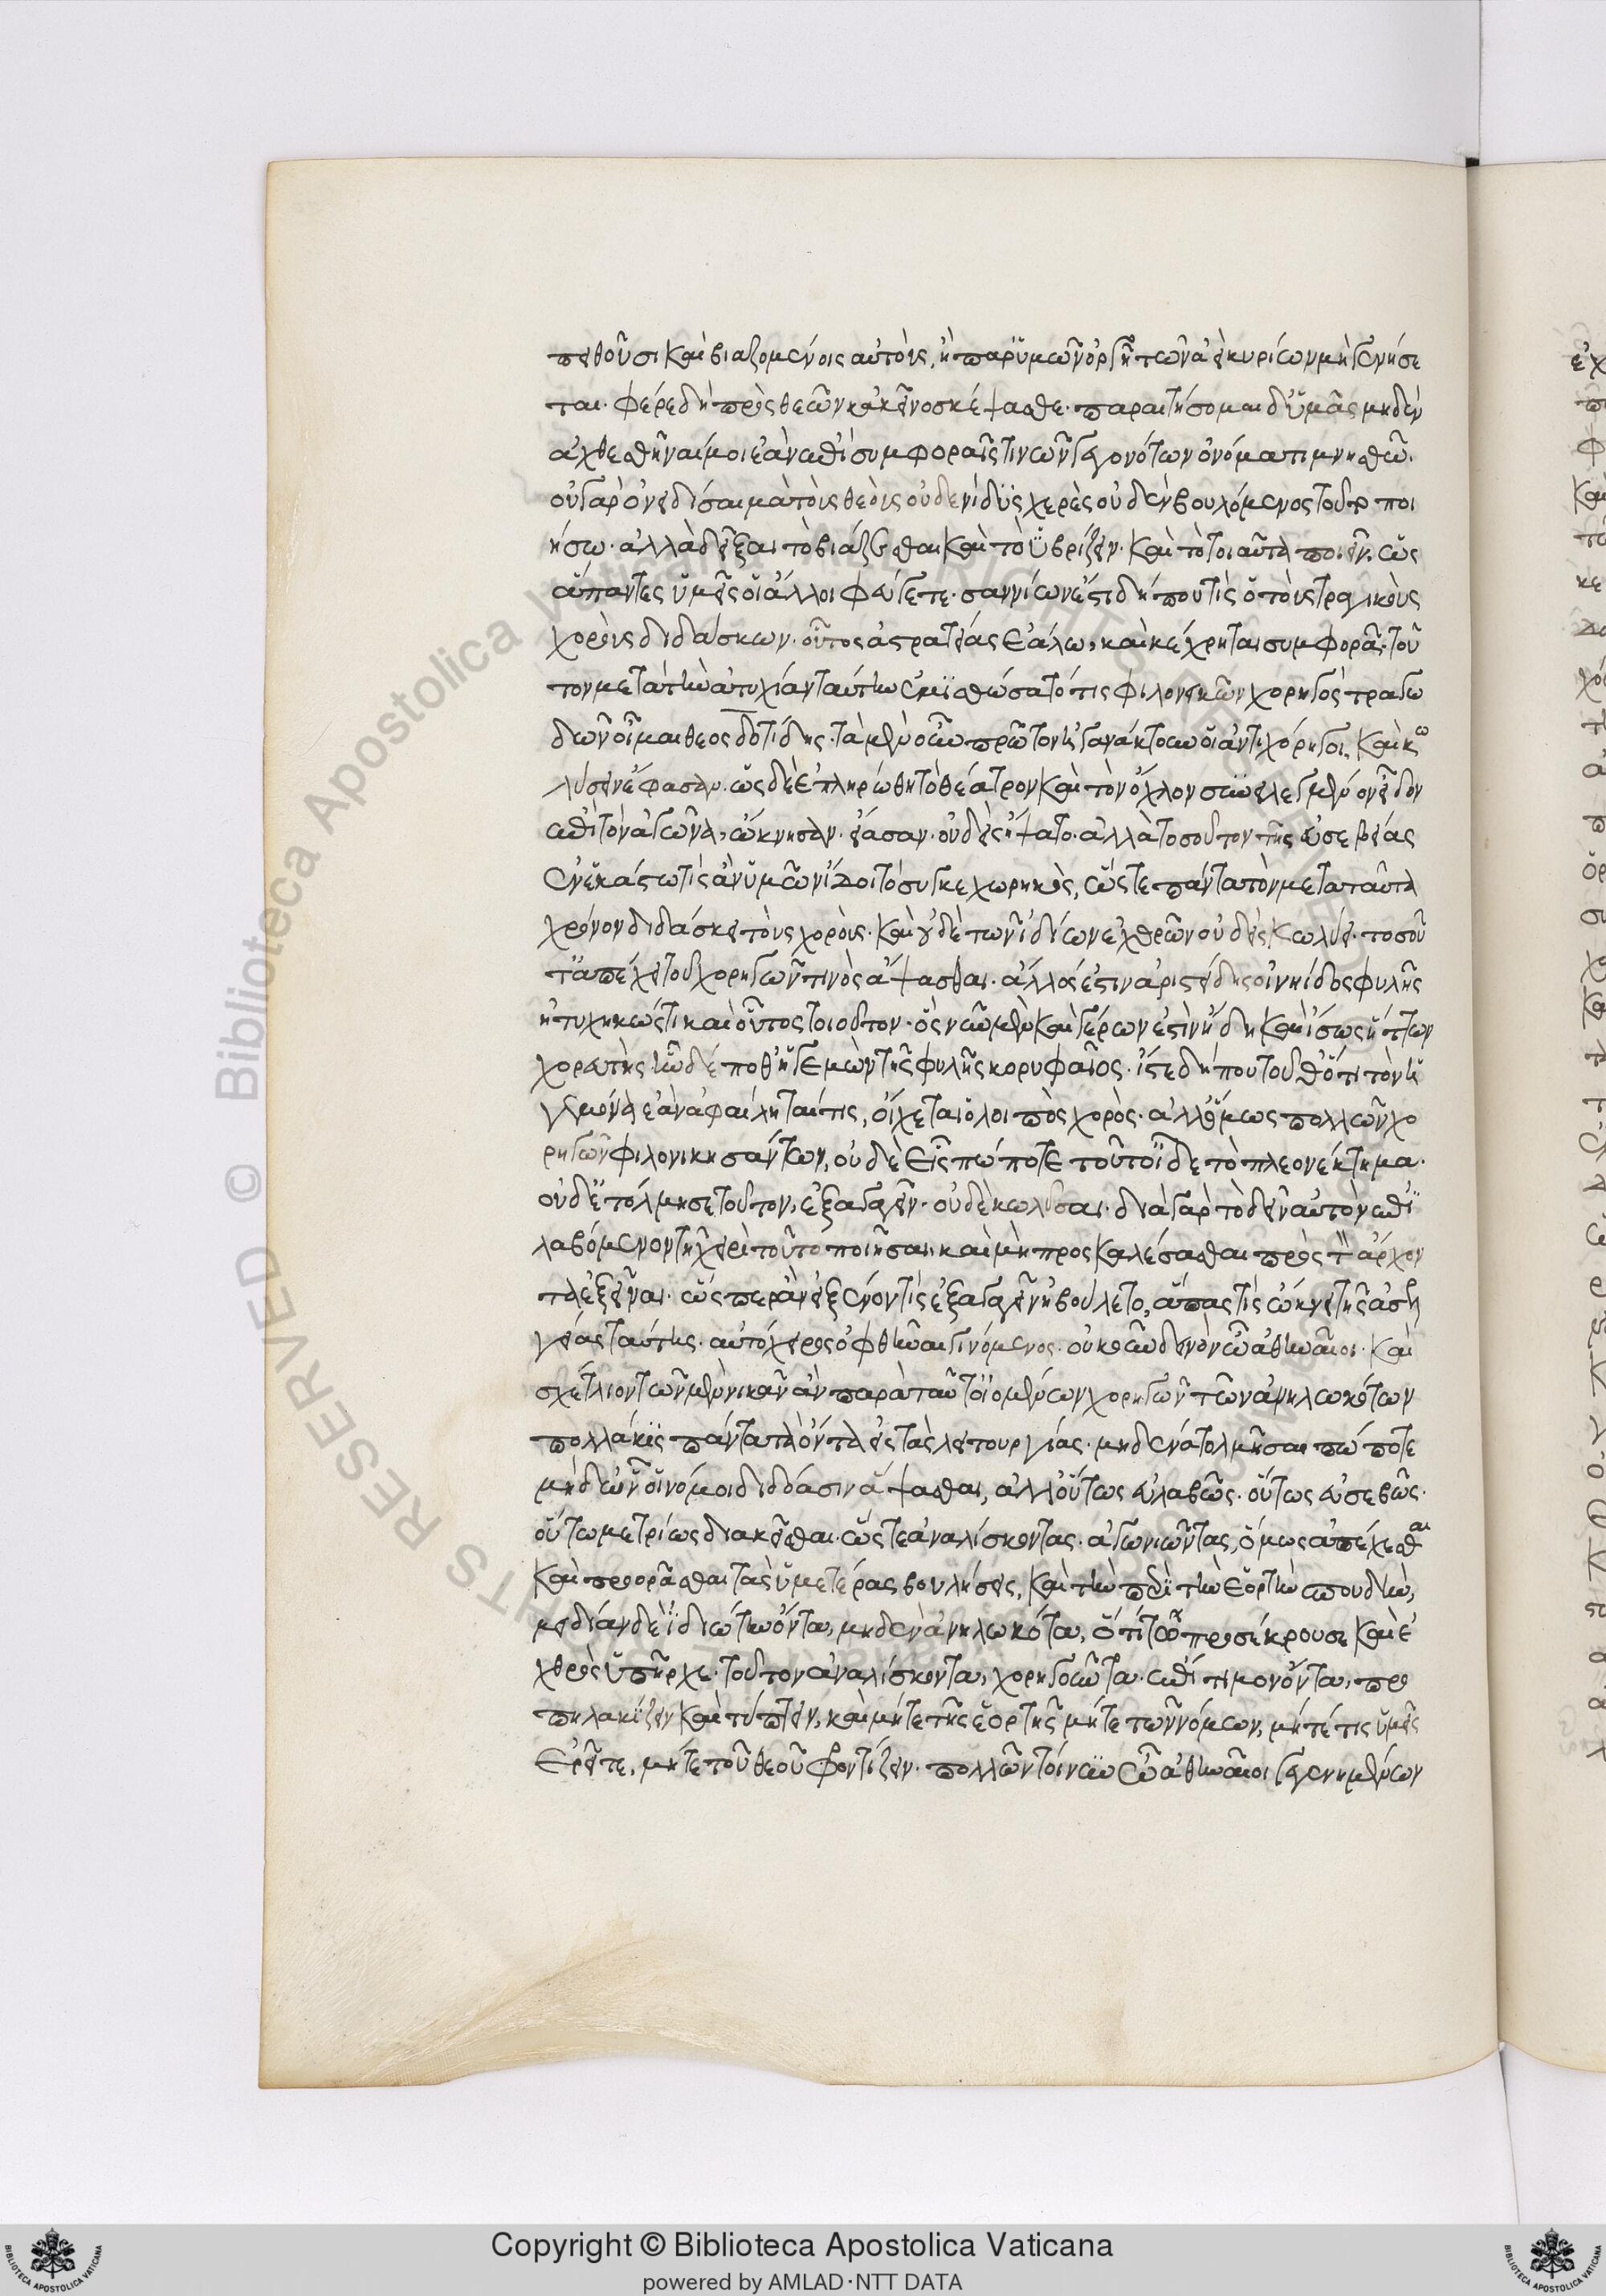 πειθοῦσι καὶ βιαζομένοις αὐτοὺς, ἡ παρ' ὑμῶν ὀργὴ τῶν ἀεὶ κυρίων μὴ γενήσε
ται. φέρε δὴ πρὸς θεῶν κἀκεῖνο σκέψασθε. παραιτήσομαι δ' ὑμᾶς μηδὲν
ἀχθεσθῆναί μοι ἐὰν ἐπὶ συμφοραῖς τινῶν γεγονότων ὀνόματι μνησθῶ.
οὐ γὰρ ὀνειδίσαι μὰ τοὺς θεοὺς οὐδενὶ δυσχερὲς οὐδὲν βουλόμενος τοῦτο ποι
ήσω. ἀλλὰ δεῖξαι τὸ βιάζεσθαι καὶ τὸ ὑβρίζειν. καὶ τὸ τοιαῦτα ποιεῖν, ὡς
ἅπαντες ὑμεῖς οἱ ἄλλοι φεύγετε. σαννίων ἐστὶ δήπου τὶς ὁ τοὺς τραγικοὺς
χοροὺς διδάσκων. οὗτος ἀστρατείας ἑάλω, καὶ κέχρηται συμφορᾷ. τοῦ
τον μετὰ τὴν ἀτυχίαν ταύτην ἐμισθώσατό τις φιλονεικῶν χορηγὸς τραγω
δῶν οἶμαι θεοσδοτίδης. τὰ μὲν οὖν πρῶτον ἠγανάκτουν οἱ ἀντιχόρηγοι, καὶ κω
λύσειν ἔφασαν. ὡς δὲ ἐπληρώθη τὸ θέατρον καὶ τὸν ὄχλον συνειλεγμένον εἶδον
ἐπὶ τὸν ἀγῶνα, ὤκνησαν. εἴασαν. οὐδεὶς ἥψατο. ἀλλὰ τοσοῦτον τῆς εὐσεβείας
ἐν ἑκάστῳ τὶς ἂν ὑμῶν ἴδοι τὸ συγκεχωρηκὸς, ὥστε πάντα τὸν μετὰ ταῦτα
χρόνον διδάσκει τοὺς χορούς. καὶ οὐδὲ τῶν ἰδίων ἐχθρῶν οὐδεὶς κωλύει. τοσοῦ
τ' ἀπέχει τοῦ χορηγῶν τινὸς ἅψασθαι. ἄλλος ἐστὶν ἀριστείδης οἰνηίδος φυλῆς
ἠτυχηκώς τι καὶ οὗτος τοιοῦτον. ὃς νῦν μὲν καὶ γέρων ἐστὶν ἤδη καὶ ἴσως ἥττων
χορευτής ἦν δέ ποθ' ἡγεμὼν τῆς φυλῆς κορυφαῖος. ἴστε δήπου τοῦθ' ὅτι τὸν ἡ
γεμόνα ἐὰν ἀφαίληταί τις, οἴχεται ὁ λοιπὸς χορός. ἀλλ' ὅμως πολλῶν χο
ρηγῶν φιλονικησάντων, οὐδὲ εἷς πώποτε τοῦτο εἶδε τὸ πλεονέκτημα.
οὐδ' ἐτόλμησε τοῦτον, ἐξαγαγεῖν. οὐδὲ κωλῦσαι. διὰ γὰρ τὸ δεῖν αὐτὸν ἐπι
λαβόμενον τῇ χειρὶ τοῦτο ποιῆσαι, καὶ μὴ προσκαλέσασθαι πρὸς τὸν ἄρχον
τα ἐξεῖναι. ὥσπερ ἂν εἰ ξένον τὶς ἐξαγαγεῖν ἠβούλετο, ἅπας τὶς ὤκνει τῆς ἀσελ
γείας ταύτης. αὐτόχειρ ὀφθῆναι γινόμενος. οὐκοῦν δεινὸν ὦ ἀθηναῖοι. καὶ
σχέτλιον τῶν μὲν νικᾶν ἂν παρὰ τοῦτο οἰομένων χορηγῶν τῶν ἀνηλωκότων
πολλάκις πάντα τὰ ὄντα εἰς τὰς λειτουργίας. μηδένα τολμῆσαι πώποτε
μηδ' ὧν οἱ νόμοι διδόασιν ἅψασθαι, ἀλλ' οὕτως εὐλαβῶς. οὕτως εὐσεβῶς.
οὕτω μετρίως διακεῖσθαι. ὥστε ἀναλίσκοντας. ἀγωνιῶντας, ὅμως ἀπέχεσθαι
καὶ προορᾶσθαι τὰς ὑμετέρας βουλήσεις, καὶ τὴν περὶ τὴν ἑορτὴν σπουδήν,
μειδίαν δὲ ἰδιώτην ὄντα, μηδὲν ἀνηλωκότα, ὅτι τῳ προσέκρουσε καὶ ἐ
χθρὸς ὑπῆρχε. τοῦτον ἀναλίσκοντα, χορηγοῦντα. ἐπίτιμον ὄντα, προ
πηλακίζειν καὶ τύπτειν, καὶ μήτε τῆς ἑορτῆς μήτε τῶν νόμων, μήτε τί ὑμεῖς
ἐρεῖτε, μήτε τοῦ θεοῦ φροντίζειν. πολλῶν τοίνυν ὦ ἀθηναῖοι γεγενημένων